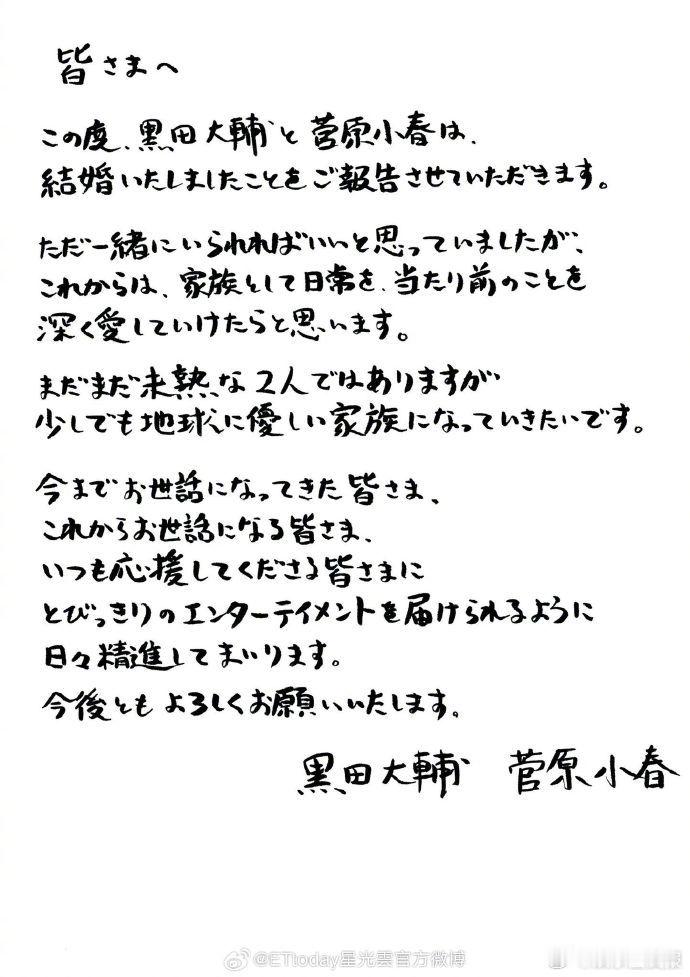 皆さまへ
この度、黒田大輔と菅原小春は、
結婚いたしましたことをご報告させていただきます。
ただ一緒にいられればいいと思っていましたが、
これからは、家族として日常を、当たり前のことを
深く愛していけたらと思います。
まだまだ未熟な2人ではありますが
少しでも地球に優しい家族になっていきたいです。
今までお世話になってきた皆さま、
これからお世話になる皆さま、
いつも応援してくださる皆さまに
とびっきりのエンターテイメントを届けられるように
日々精進してまいります。
今後ともよろしくお願いいたします。
黒田大輔 菅原小春
@ETtoday星光雲官方微博